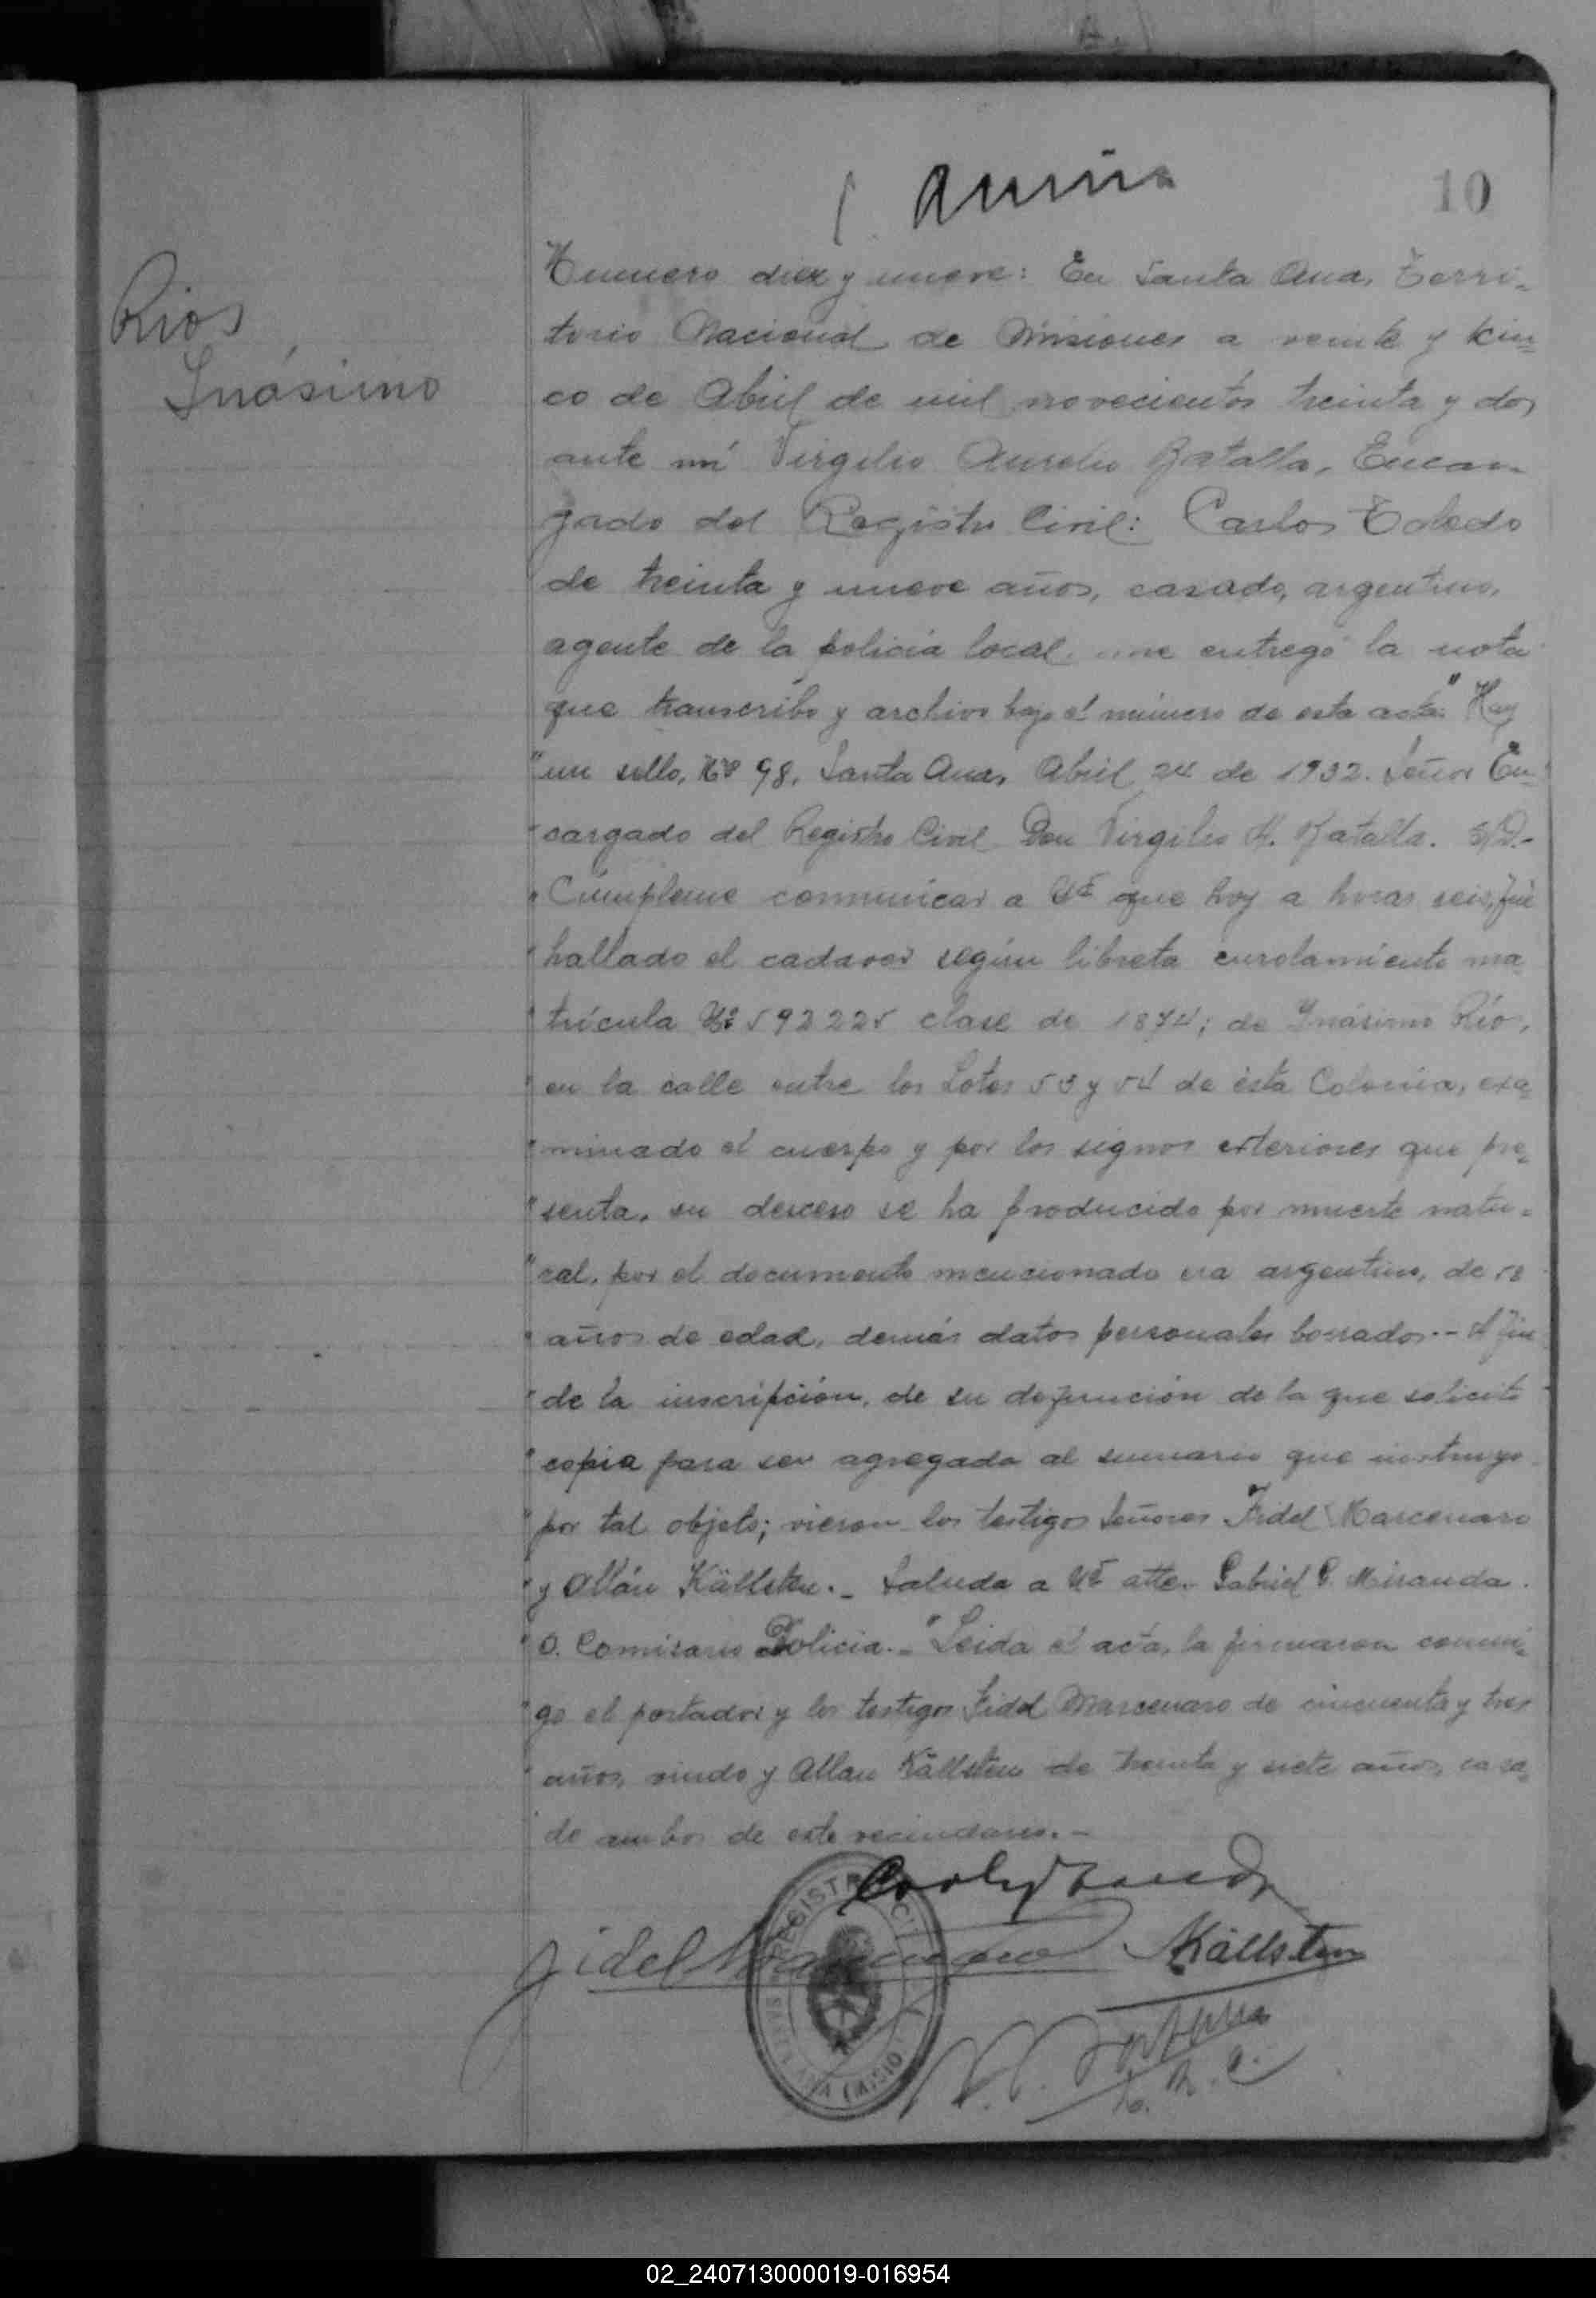 10
Rios
Inásimo
Numero diez y nueve: En Santa Ana, Terri-
torio Nacional de Misiones a veinte y cin-
co de Abril de mil novecientos treinta y dos
ante mi Virgilio Aurelio Batalla, Encar-
gado del Registro Civil: Carlos Toledo
de treinta y nueve años, casado, argentino,
agente de la policia local me entregó la nota
que transcribo y archivo bajo el número de esta acta: "Hay
"un sello, No 98, Santa Ana, Abril 24 de 1932. Señor En-
"cargado del Registro Civil Don Virgilio A. Batalla. S/D.-
"Cúmpleme comunicar a Ud que hoy a horas seis, fué
"hallado el cadaver según libreta enrolamiento ma-
"trícula No 592225 clase de 1874; de Inásimo Rios,
"en la calle entre los Lotes 53 y 54 de ésta Colonia, exa-
"minado el cuerpo y por los signos exteriores que pre-
"senta, su deceso se ha producido por muerte natu-
"ral, por el documento mencionado era argentino, de 58
"años de edad, demás datos personales borrados.- A fin
"de la inscripción, de su defunción de la que solicito
"copia para ser agregada al sumario que instruyo
"por tal objeto; vieron los testigos Señores Fidel Marcenaro
"y Allán Källsten.- Saluda a Ud atte. Gabriel G. Miranda.
"O. Comisario Policia.-" Leida el acta, la firmaron conmi-
"go el portador y los testigos Fidel Marcenaro de cincuenta y tres
"años, viudo y Allan Källsten de treinta y siete años, casa-
do ambos de este vecindario.-
Fidel Marcenaro AKällsten
REGISTRO CIVIL
SANTA ANA (MISIO
E. R. C.
02_240713000019-016954